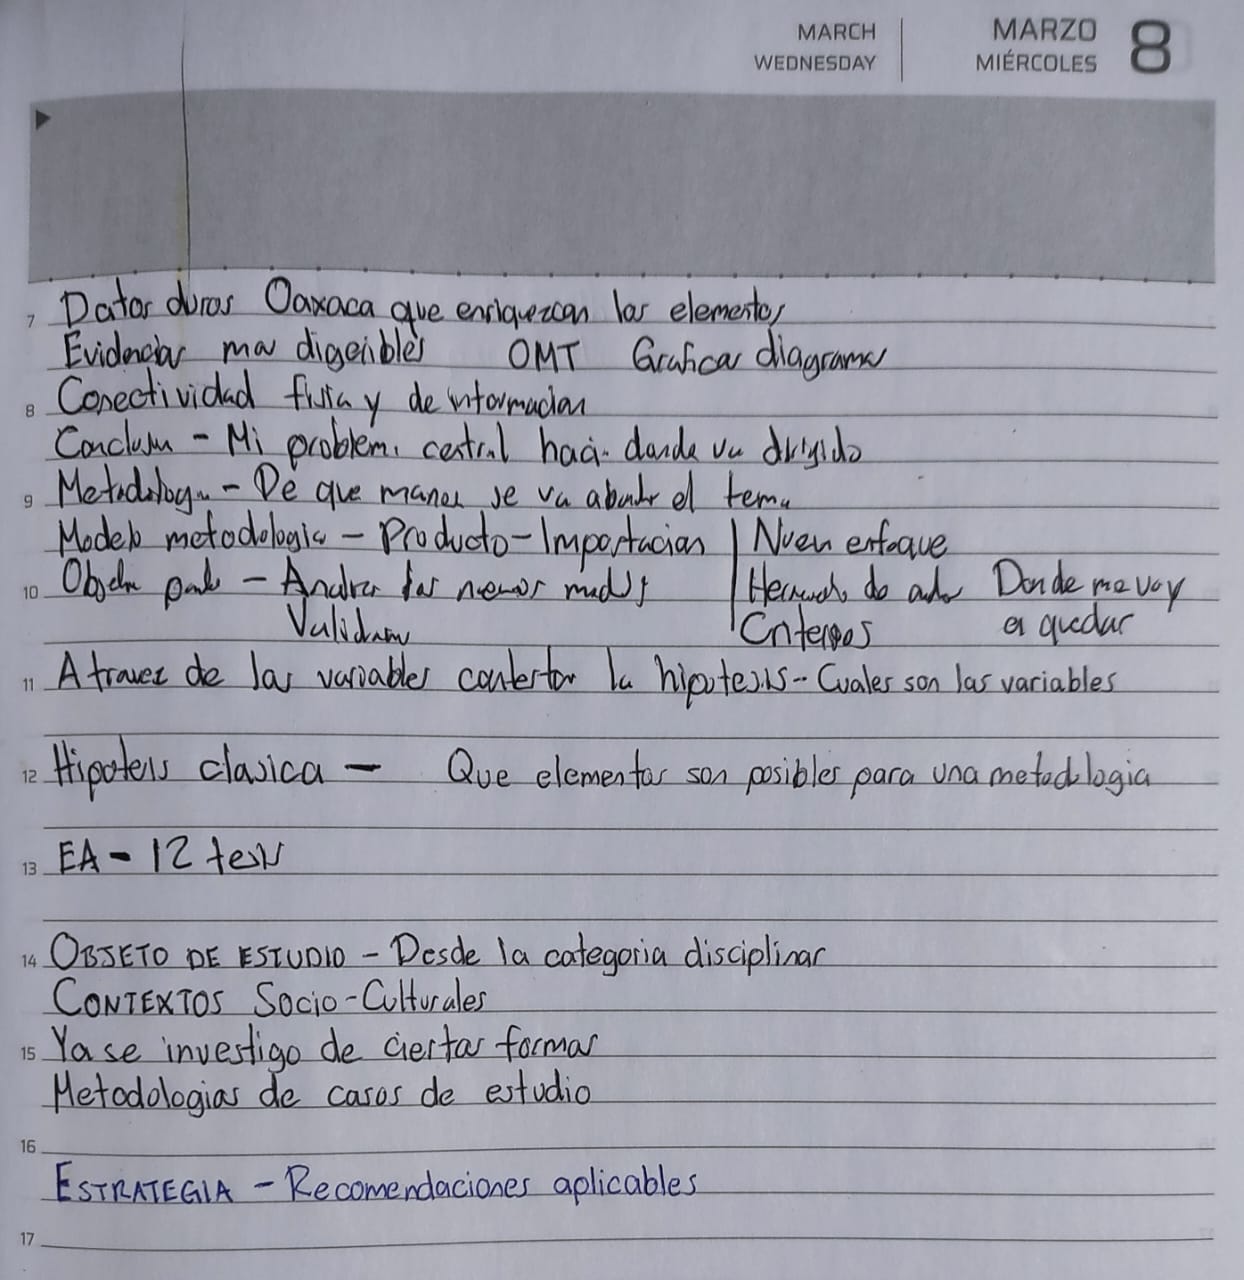 MARCH
WEDNESDAY
MARZO
MIÉRCOLES
8
7 Datos duros Oaxaca que enriquezcan los elementos
Evidencias mas digeribles OMT Graficas diagramas
8 Conectividad fisica y de informacion
Conclusion - Mi problem. central haci. donde va dirigido
9 Metodologia - De que manera se va abordar el tema
Modelo metodologic - Producto - Importacion | Nuevo enfoque
10 - los nuevos Donde me voy
Criterios a quedar
11 A travez de las variables contestar la hipotesis - Cuales son las variables
12 Hipotesis clasica - Que elementos son posibles para una metodologia
13 EA - 12 tesis
14 OBJETO DE ESTUDIO - Desde la categoria disciplinar
CONTEXTOS Socio-Culturales
15 Ya se investigo de ciertas formas
Metodologias de casos de estudio
16
ESTRATEGIA - Recomendaciones aplicables
17